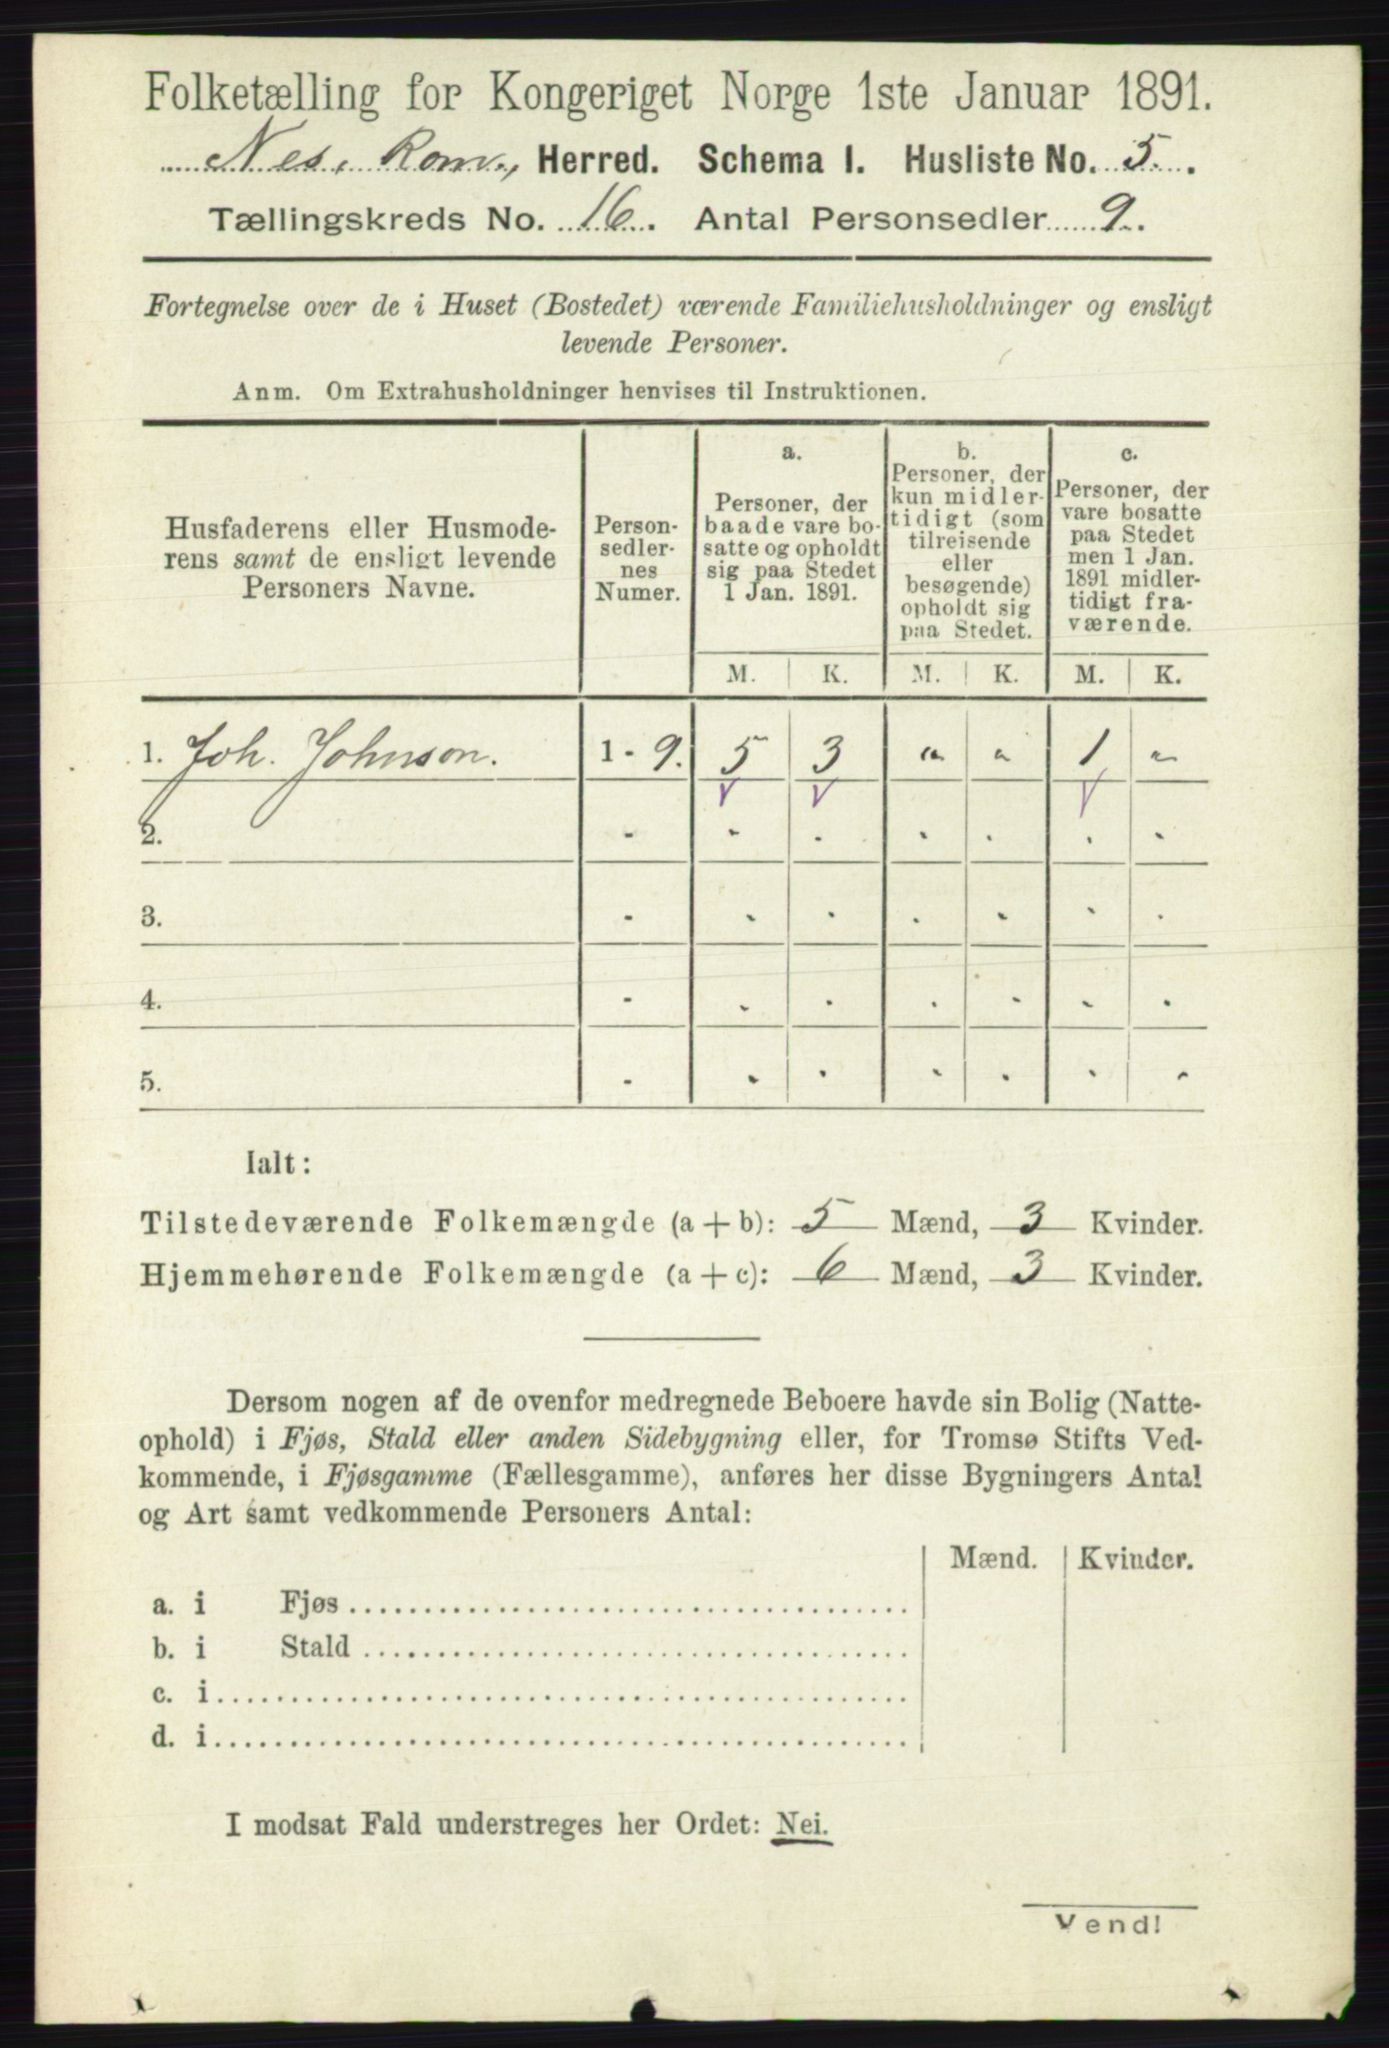 Folketælling for Kongeriget Norge 1ste Januar 1891.
Nes, Rom., Herred. Schema I. Husliste No. 5.
Tællingskreds No. 16. Antal Personsedler 9.
Fortegnelse over de i Huset (Bostedet) værende Familiehusholdninger og ensligt
levende Personer.
Anm. Om Extrahusholdninger henvises til Instruktionen.
Husfaderens eller Husmode-
rens samt de ensligt levende
Personers Navne.
Person-
sedler-
nes
Numer.
a.
Personer, der
baade vare bo-
satte og opholdt
sig paa Stedet
1 Jan. 1891.
b.
Personer, der
kun midler-
tidigt (som
tilreisende
eller
besøgende)
opholdt sig
paa Stedet.
c.
Personer, der
vare bosatte
paa Stedet
men 1 Jan.
1891 midler-
tidigt fra-
værende.
M. K. M. K. M. K.
1. Joh. Johnson. 1 - 9. 5 3 " " 1 "
2. -
3. -
4. -
5. -
Ialt:
Tilstedeværende Folkemængde (a + b): 5 Mænd, 3 Kvinder.
Hjemmehørende Folkemængde (a + c): 6 Mænd, 3 Kvinder.
Dersom nogen af de ovenfor medregnede Beboere havde sin Bolig (Natte-
ophold) i Fjøs, Stald eller anden Sidebygning eller, for Tromsø Stifts Ved-
kommende, i Fjøsgamme (Fællesgamme), anføres her disse Bygningers Antal
og Art samt vedkommende Personers Antal:
Mænd. Kvinder.
a. i Fjøs
b. i Stald
c. i
d. i
I modsat Fald understreges her Ordet: Nei.
Vend!